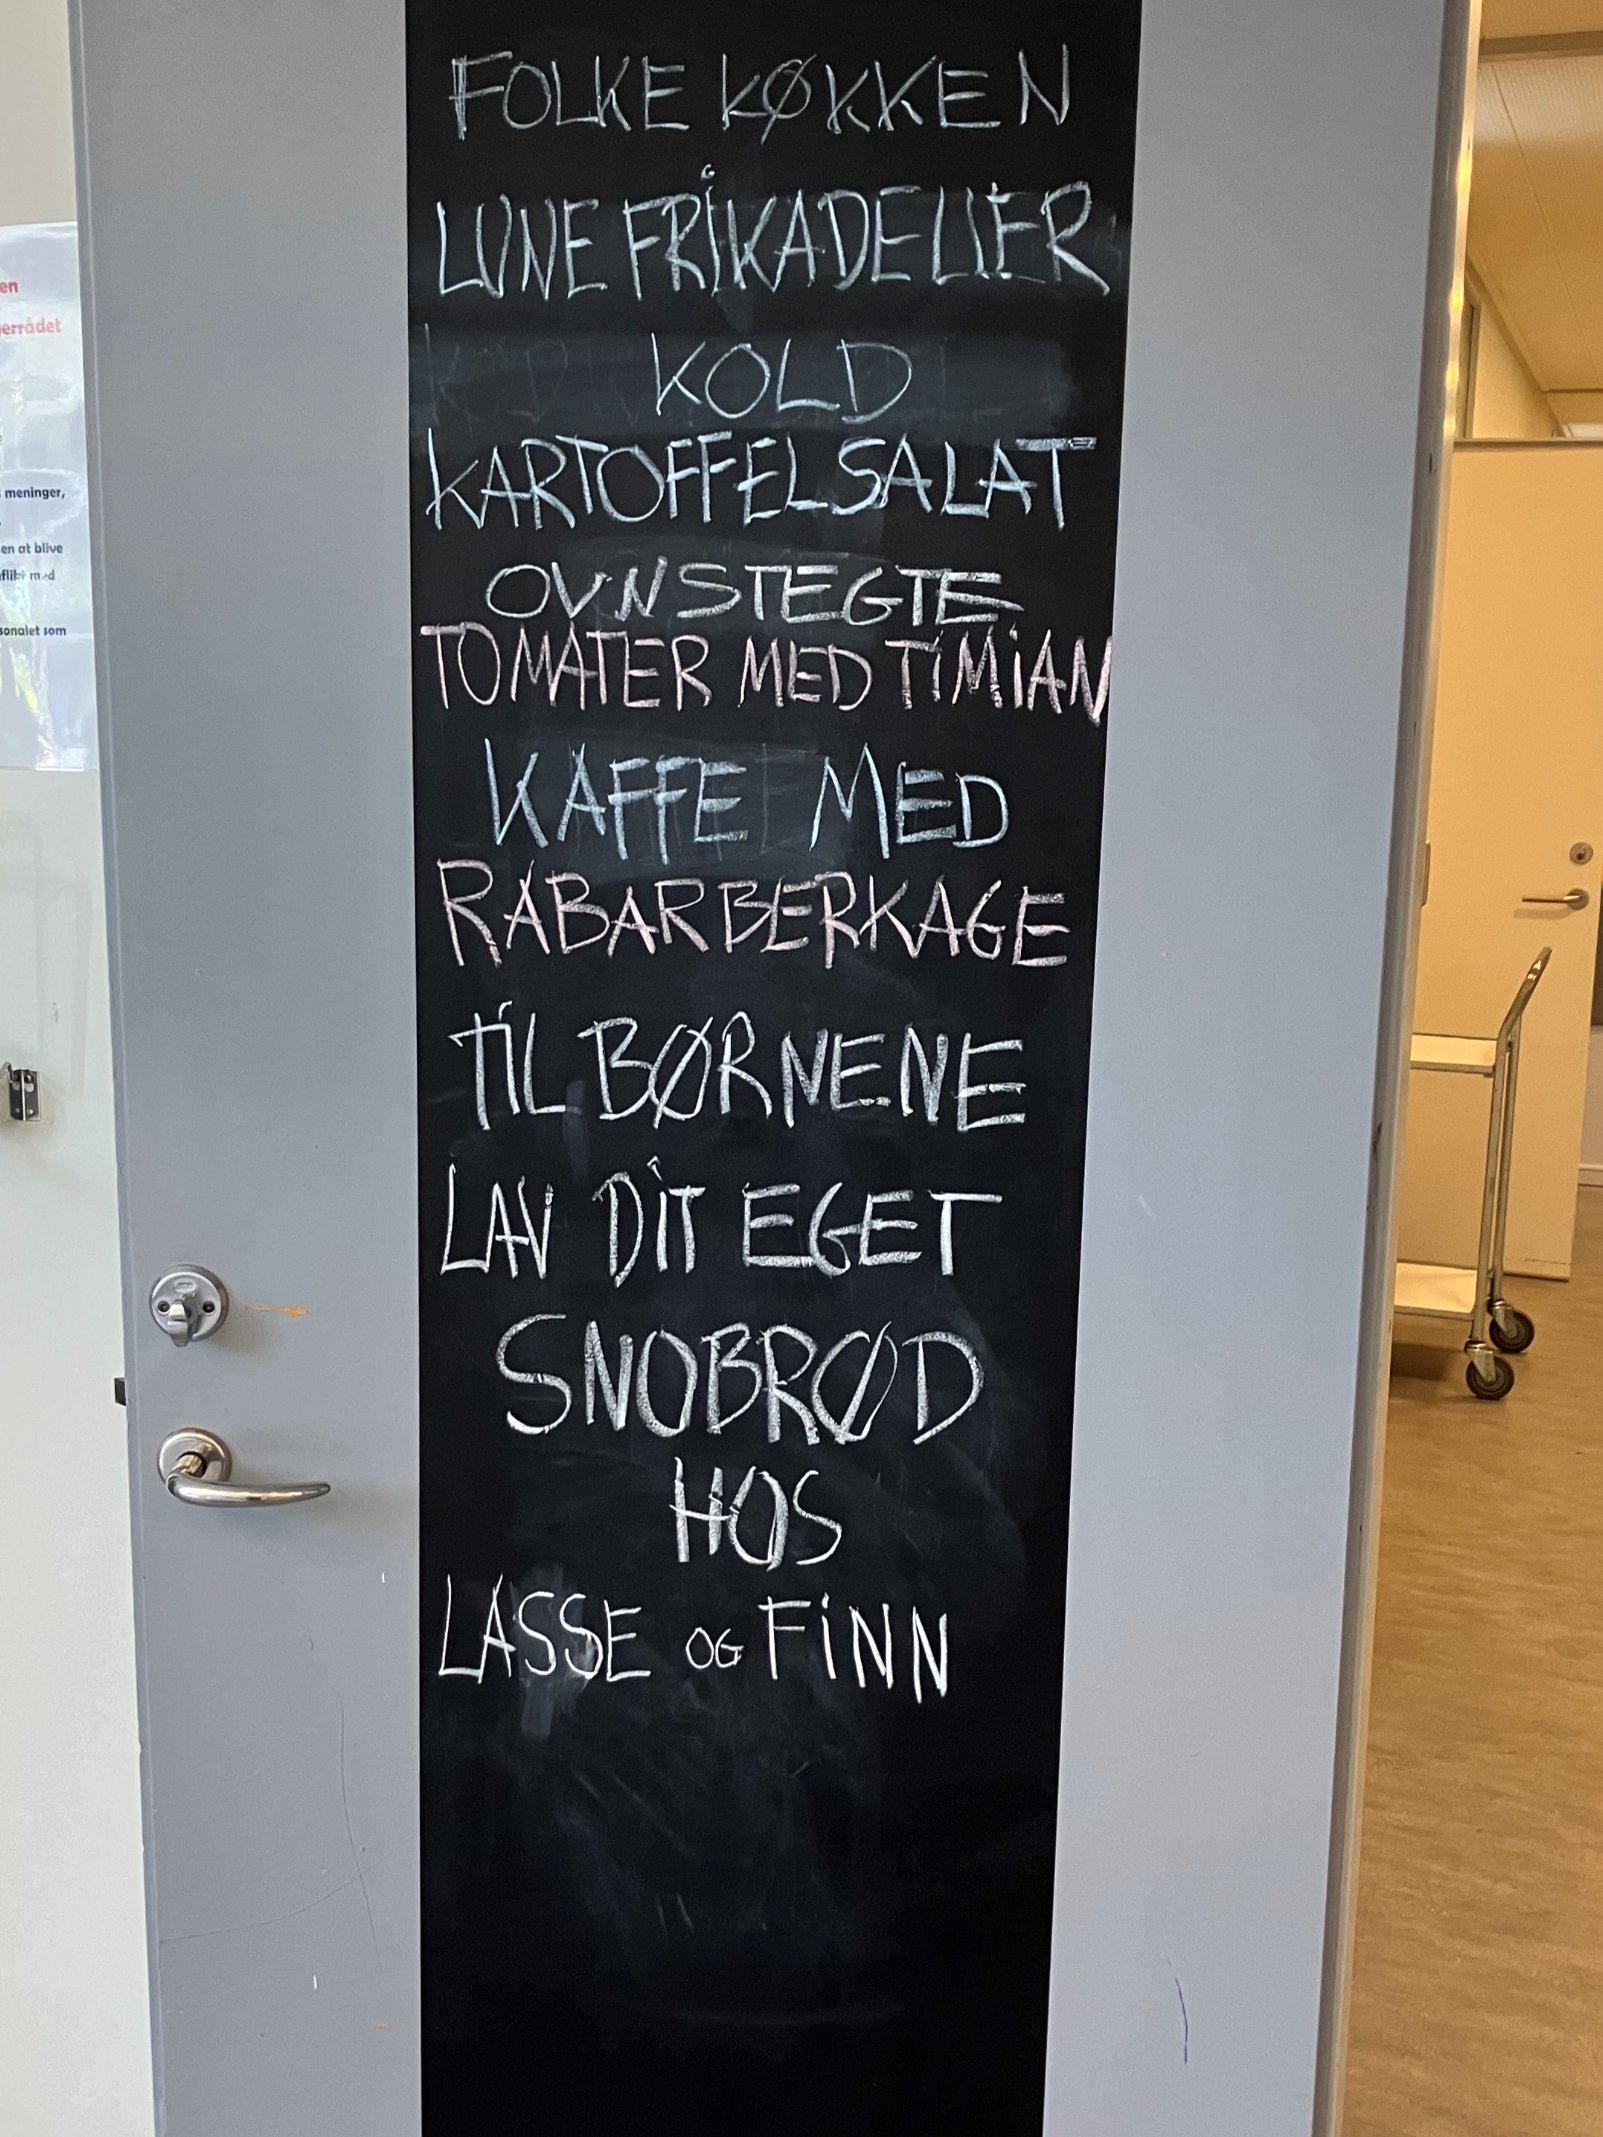 FOLKE KØKKEN
LUNE FRIKADELLER
KOLD
KARTOFFELSALAT
OVNSTEGTE
TOMATER MED TIMIAN
KAFFE MED
RABARBERKAGE
TIL BØRNENE
LAV DIT EGET
SNOBRØD
HOS
LASSE OG FINN
en
errådet
meninger,
en at blive
med
sonalet som